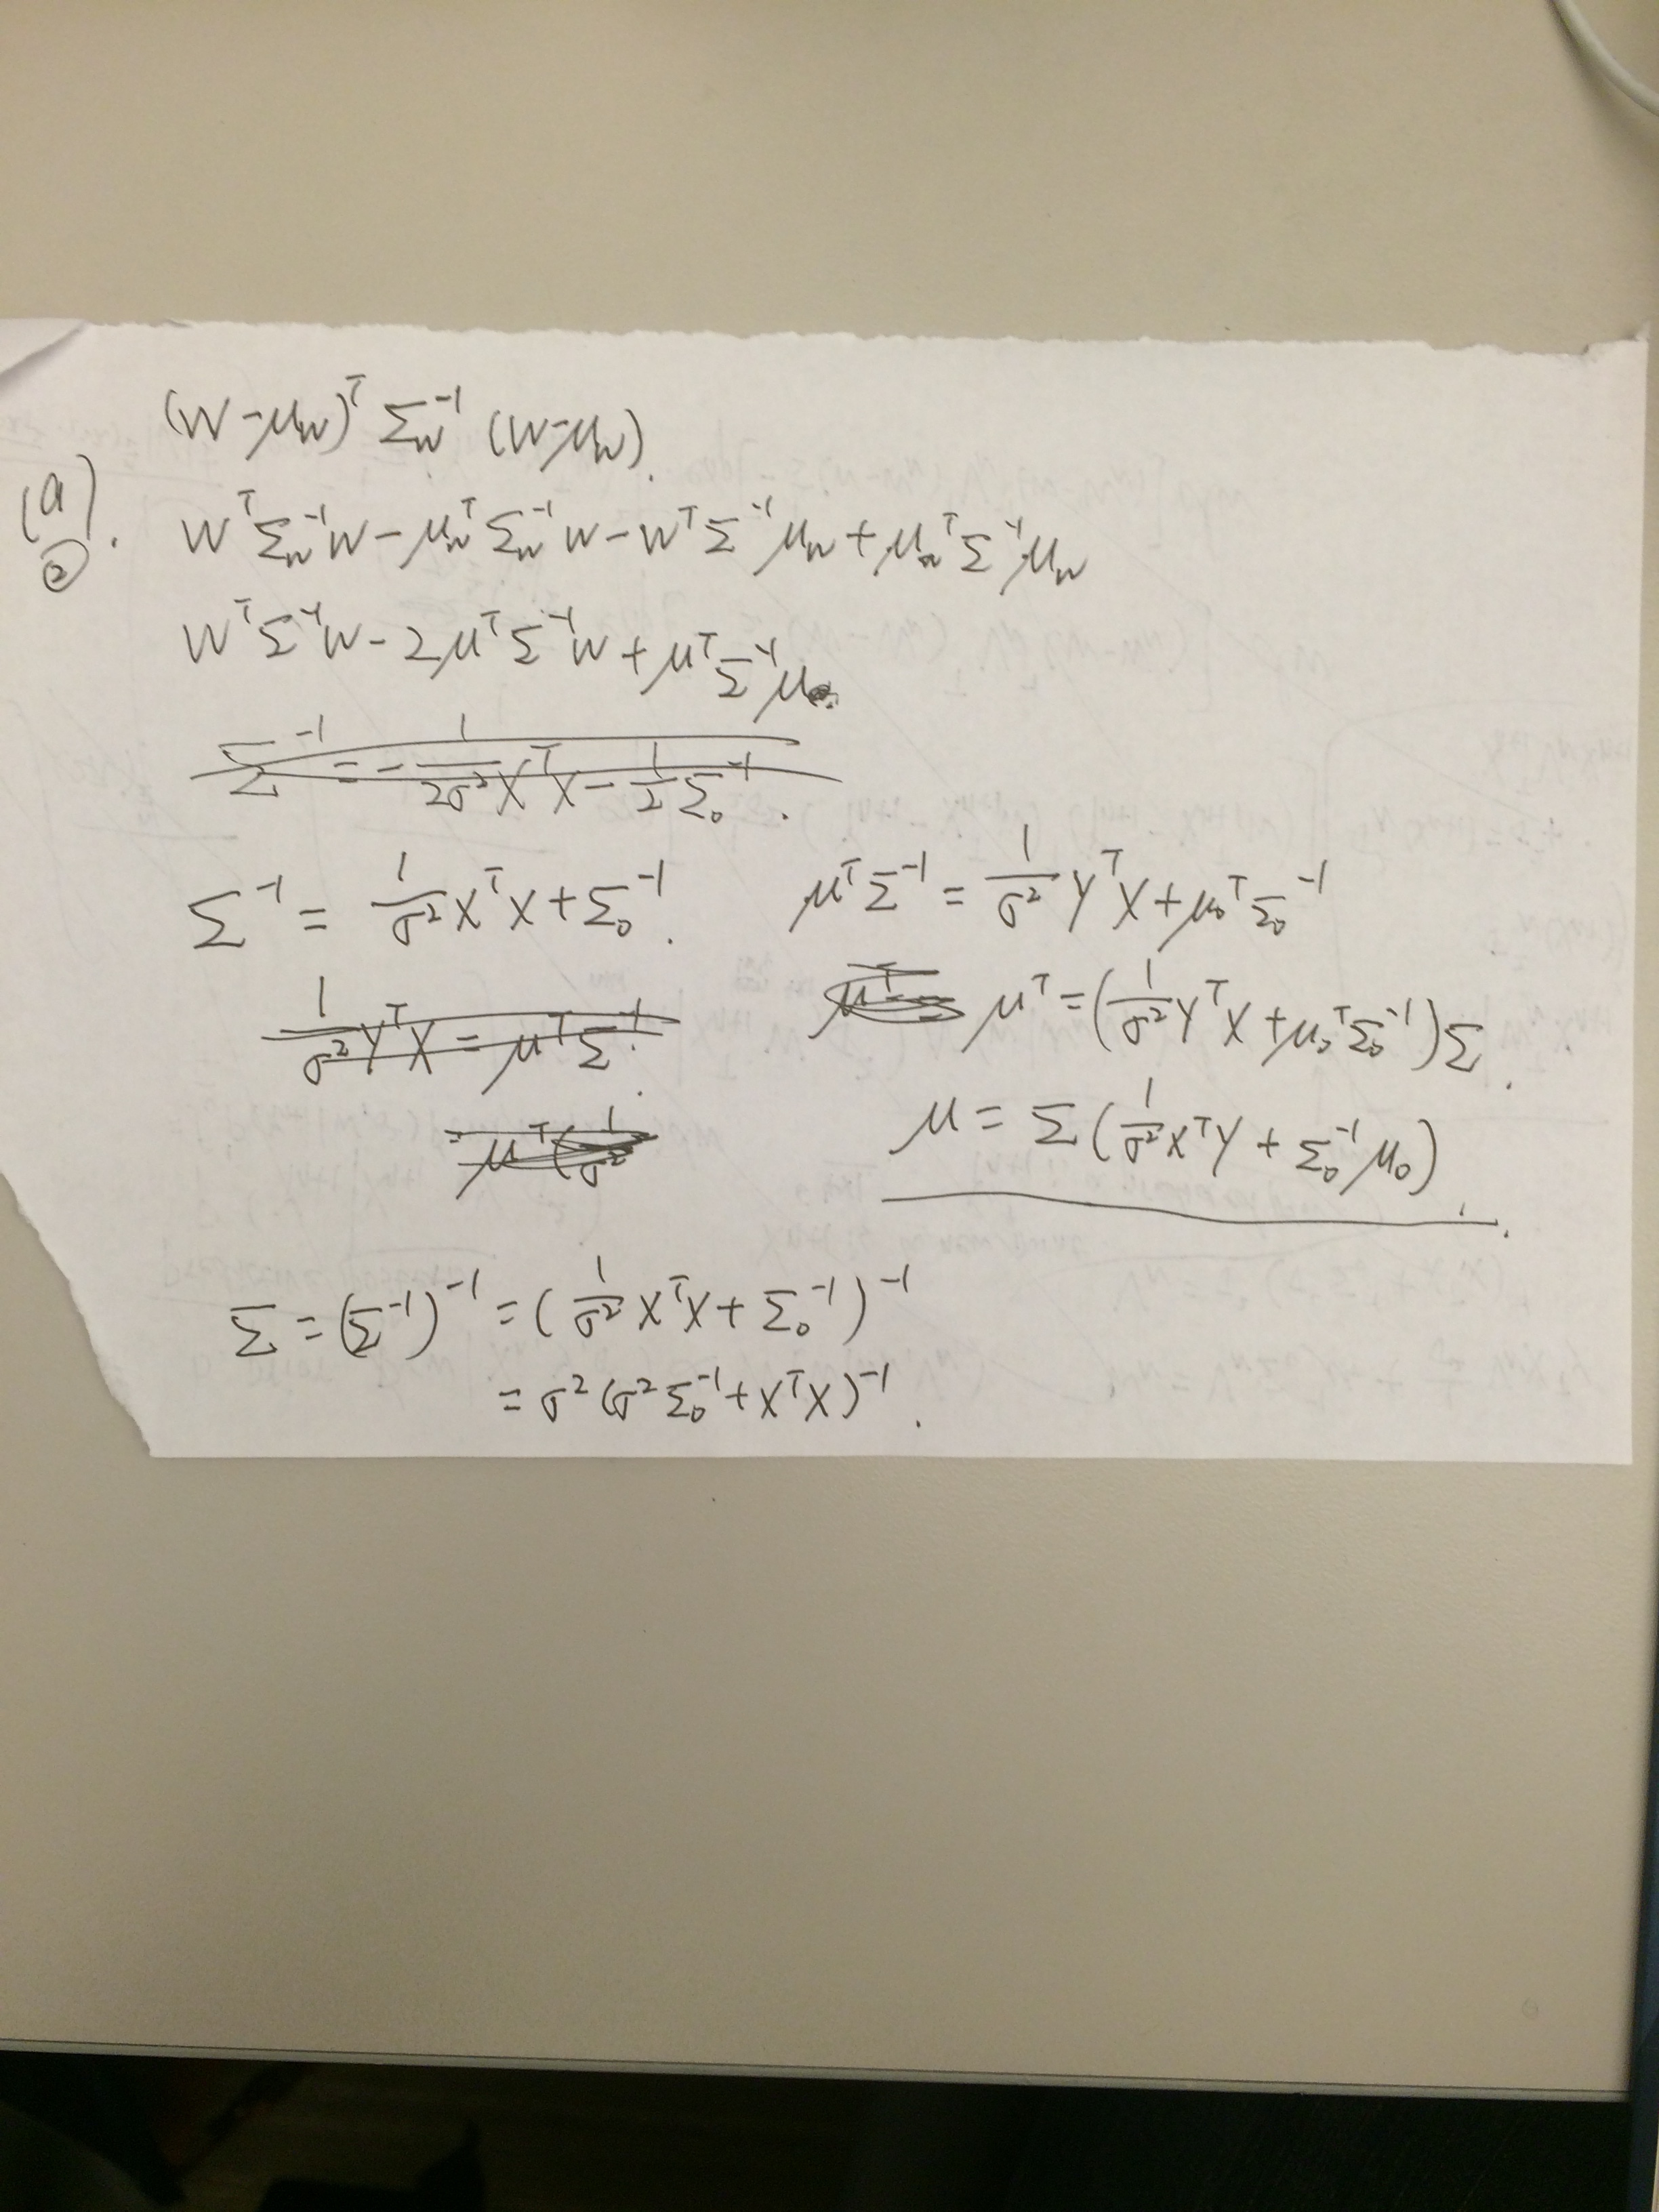 (W-μ_W)^T Σ_W^{-1} (W-μ_W).
(a). ② W^T Σ_W^{-1} W - μ_W^T Σ_W^{-1} W - W^T Σ^{-1} μ_W + μ_W^T Σ^{-1} μ_W
W^T Σ^{-1} W - 2μ^T Σ^{-1} W + μ^T Σ^{-1} μ
Σ^{-1} = - 1/(2σ²) X^T X - 1/2 Σ_0^{-1}.
Σ^{-1} = 1/σ² X^T X + Σ_0^{-1}.
1/σ² Y^T X = μ^T Σ^{-1}.
= μ^T (1/σ²
μ^T Σ^{-1} = 1/σ² Y^T X + μ_0^T Σ_0^{-1}
μ^T = μ^T = (1/σ² Y^T X + μ_0^T Σ_0^{-1}) Σ.
μ = Σ (1/σ² X^T Y + Σ_0^{-1} μ_0).
Σ = (Σ^{-1})^{-1} = (1/σ² X^T X + Σ_0^{-1})^{-1}
= σ² (σ² Σ_0^{-1} + X^T X)^{-1}.